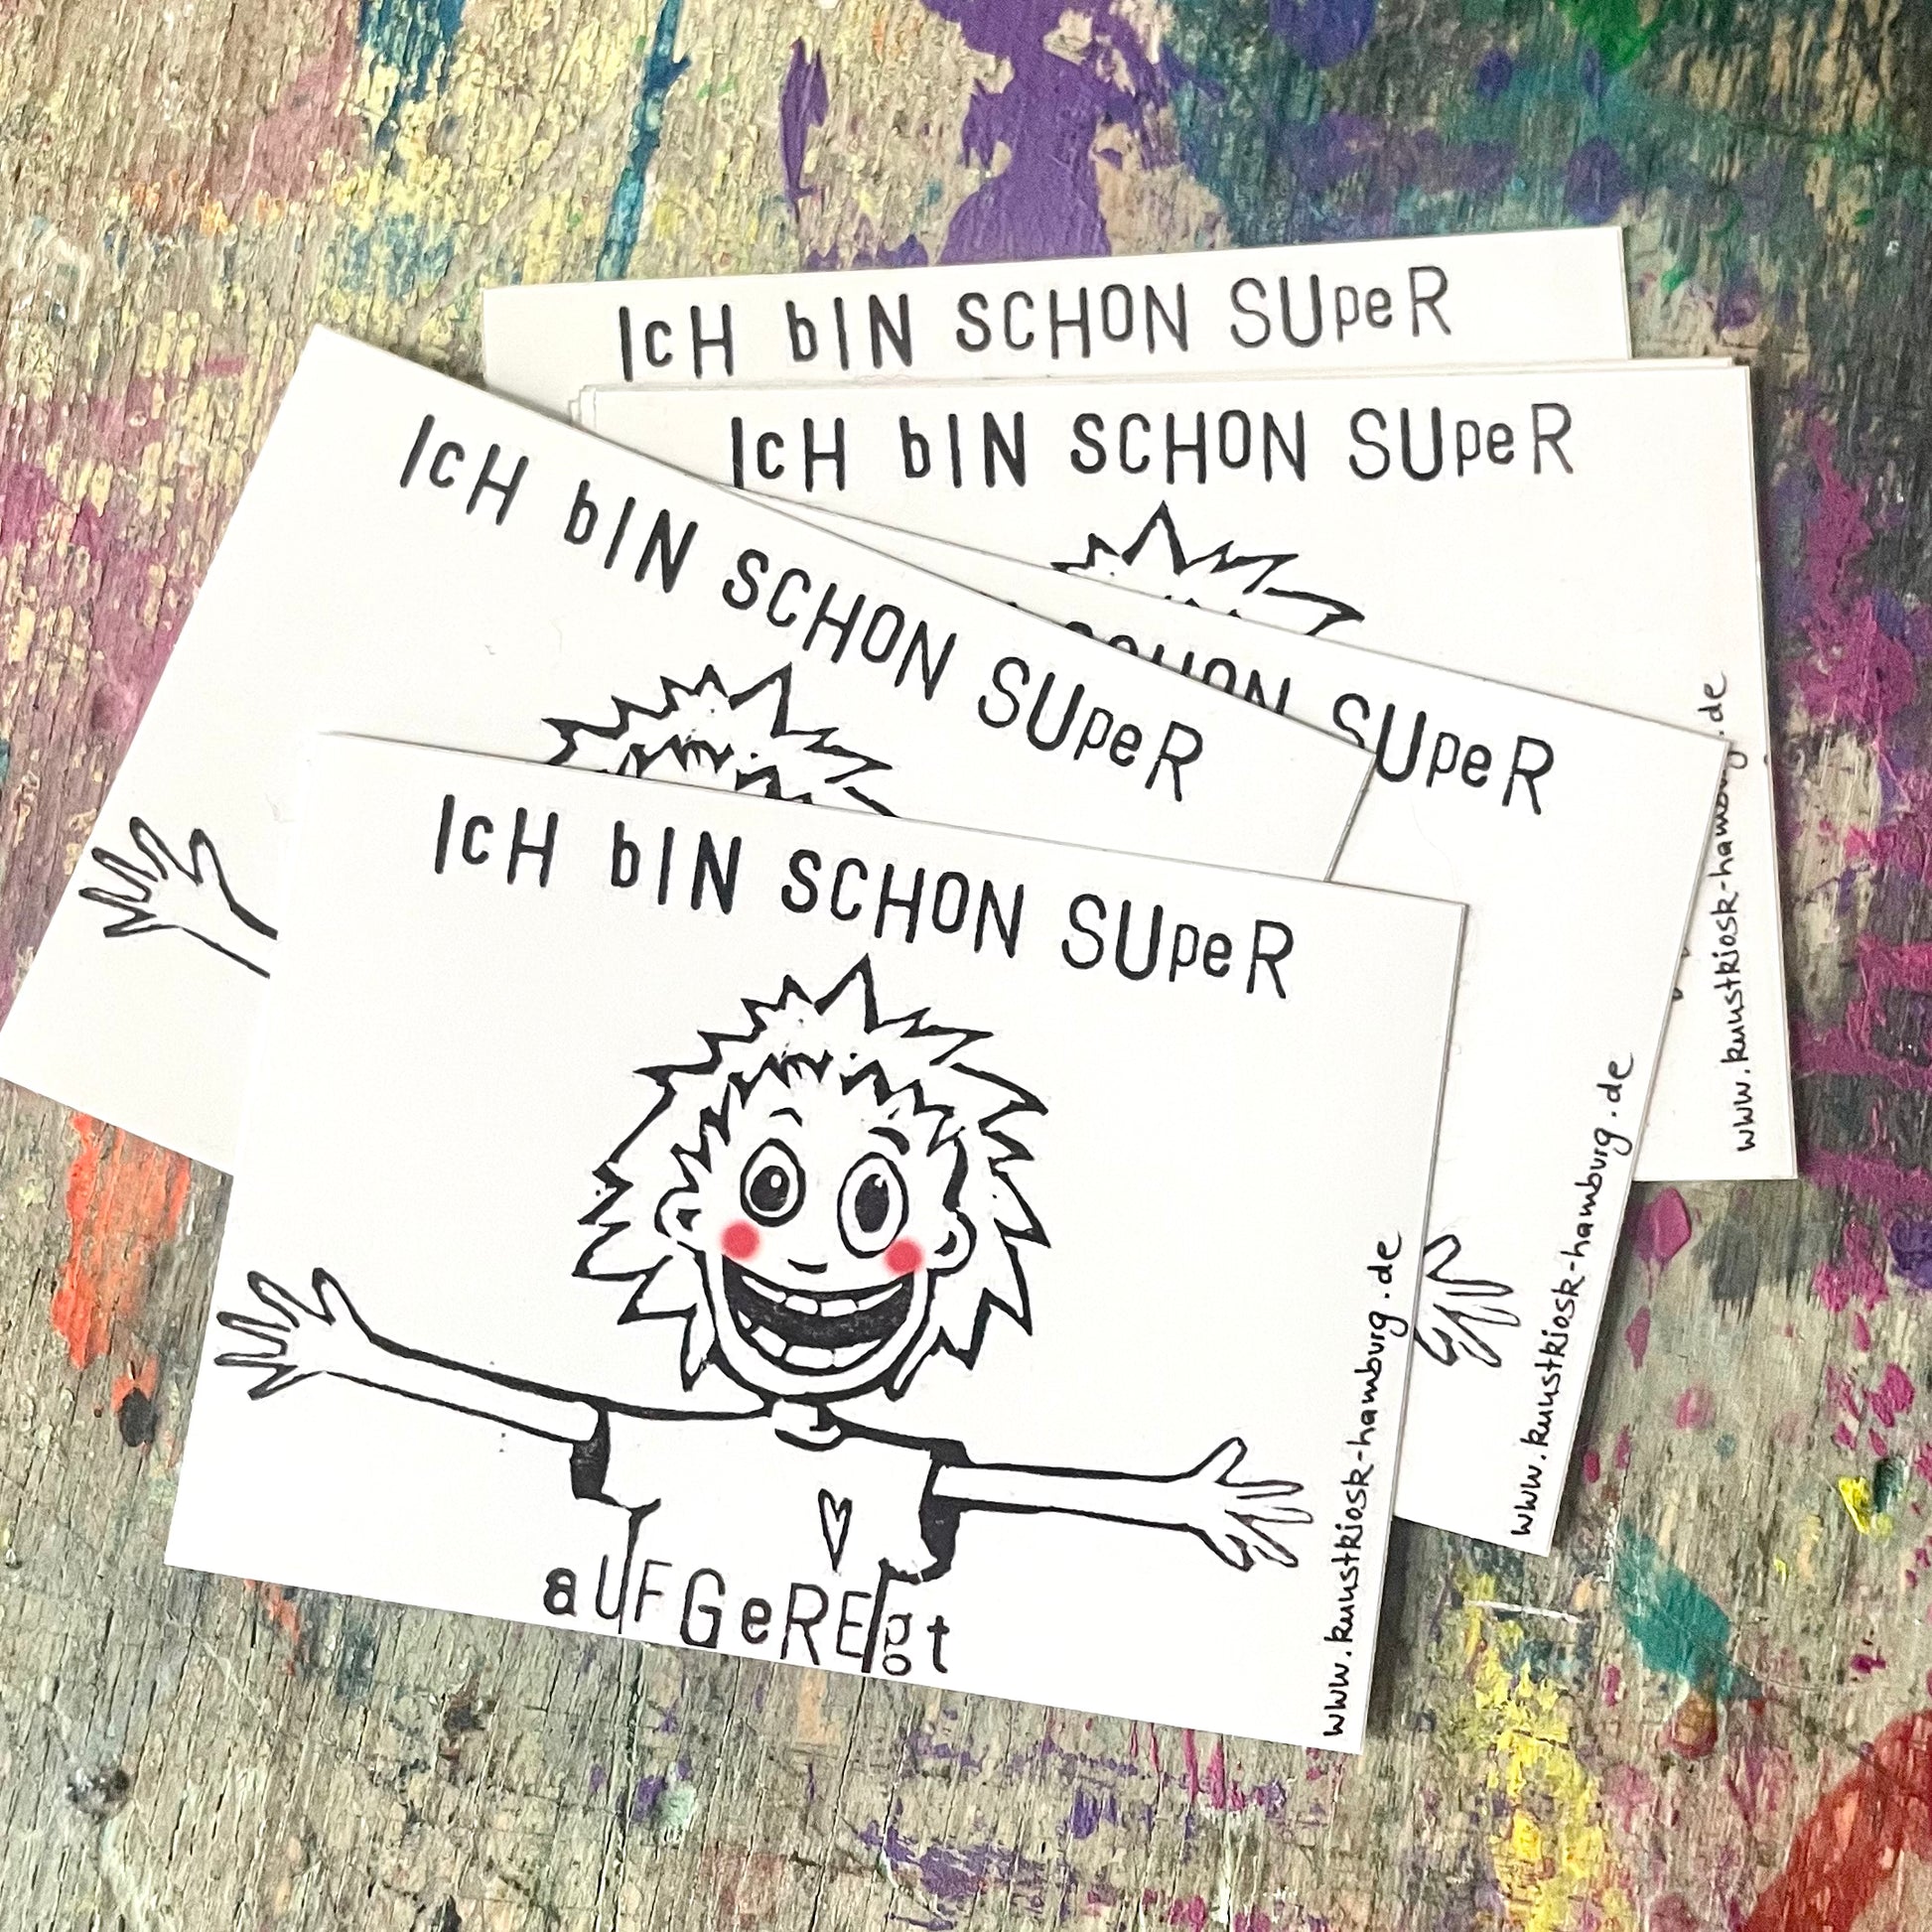 IcH bIN SCHON SUpeR
IcH bIN SCHON SUpeR
www.kunstkiosk-hamburg.de
SCHON SUpeR
www.kunstkiosk-hamburg.de
IcH bIN SCHON SUpeR
IcH bIN SCHON SUpeR
aUFGeREgt
www.kunstkiosk-hamburg.de